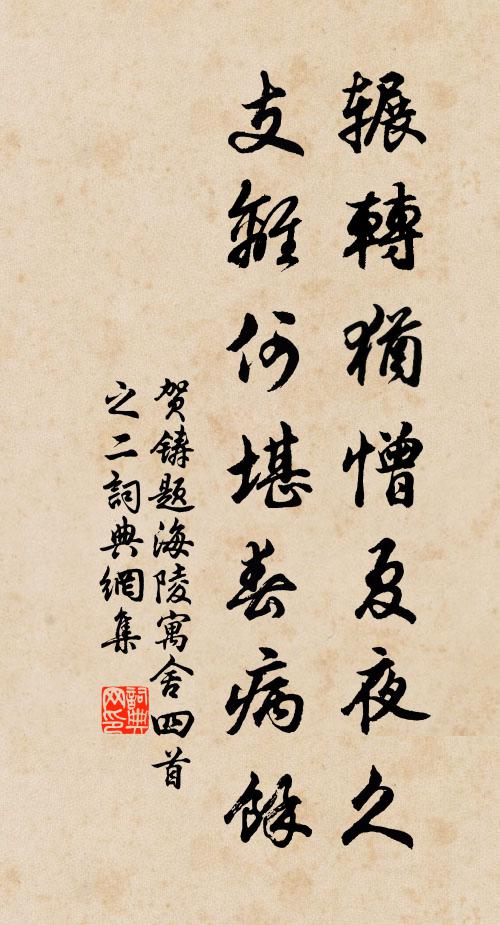 輾轉猶憎夏夜久
支離何堪春病餘
賀鑄題海陵寓舍四首
之二詞典網集
詞典
网印